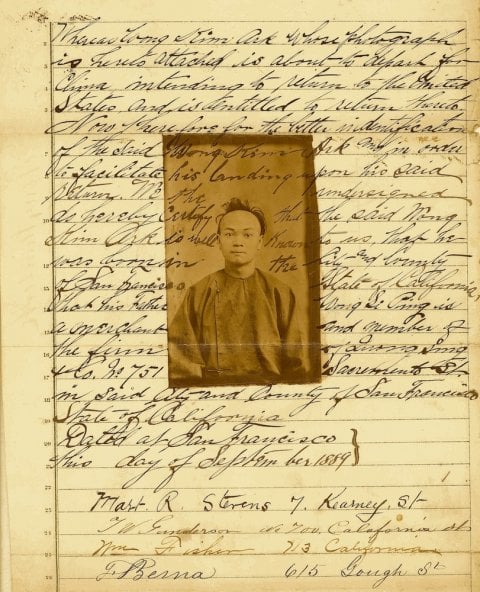 Whereas Wong Kim Ark whose photograph
is hereto attached is about to depart for
China intending to return to the United
States and is entitled to return thereto
Now Therefore for the better identification
of the said Wong Kim Ark and in order
to facilitate his landing upon his said
return. We the undersigned
do hereby certify that the said Wong
Kim Ark is well known to us, that he
was born in the City and County
of San Francisco State of California,
that his father Wong Si Ping is
a merchant and member of
the firm of Quong Sing
& Co. No 751 Sacramento St
in said City and County of San Francisco
State of California
Dated at San Francisco
this day of September 1889
Mart. R. Stevens 7. Kearney. St
Gunderson 700 California st
Wm Fisher 713 California
F. Berna 615 Gough St